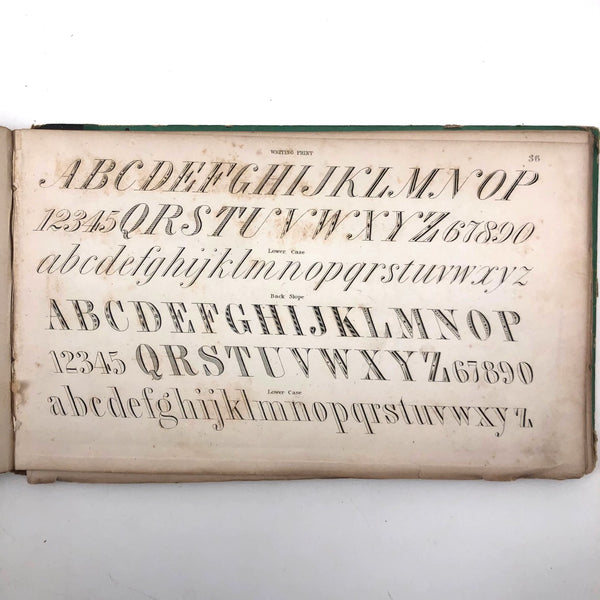 WRITING PRINT
36
ABCDEFGHIJKLMNOP
12345 QRSTUVWXYZ 67890
Lower Case
abcdefghijklmnopqrstuvwxyz
Back Slope
ABCDEFGHIJKLMNOP
12345 QRSTUVWXYZ 67890
Lower Case
abcdefghijklmnopqrstuvwxyz